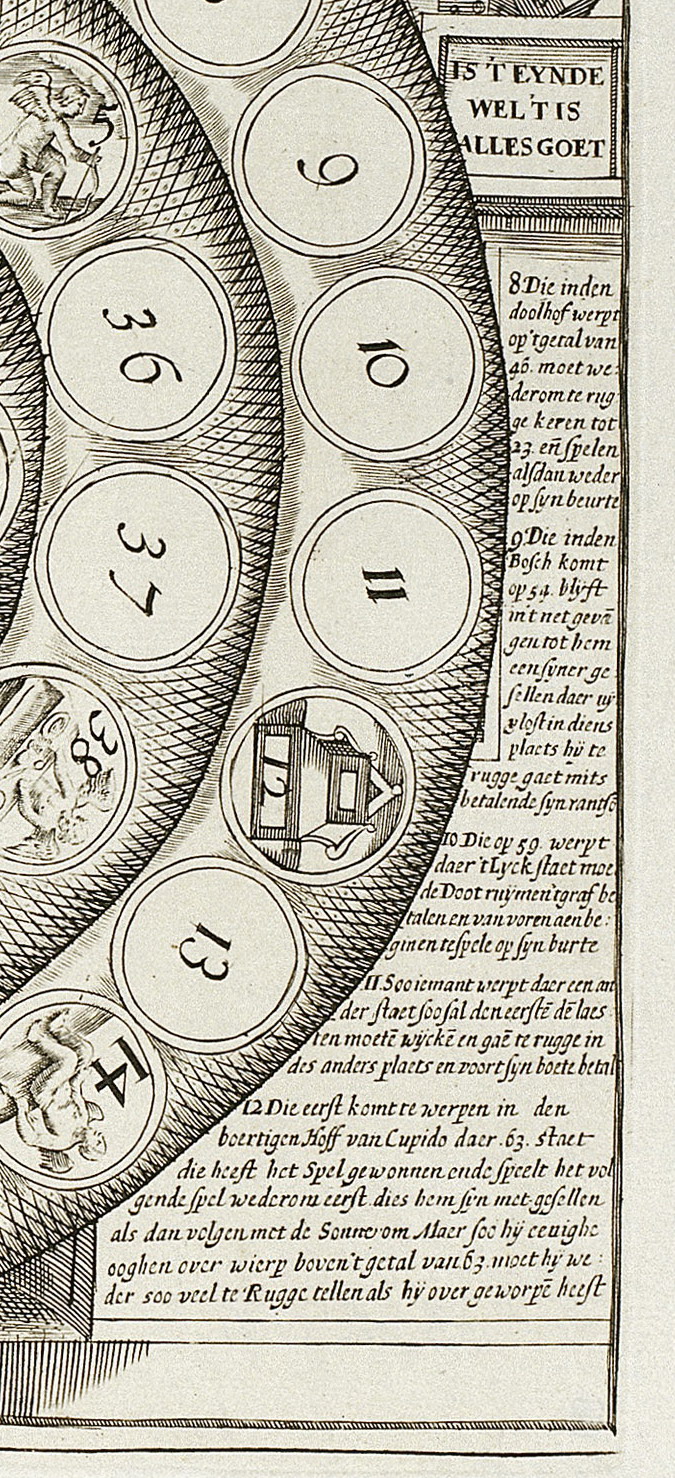 IS 'T EYNDE
WEL 'T IS
ALLES GOET
9
5
10
36
11
37
12
38
13
14
8. Die inden
doolhof werpt
op 't getal van
46. moet we:
derom te rug
ge keren tot
23. en̄ spelen
alsdan weder
op syn beurte
9. Die inden
Bosch komt
op 54. blyft
in't net gevā
gen tot hem
een syner ge
sellen daer uÿ
ylost in diens
plaets hÿ te
rugge gaet mits
betalende syn rantso
10. Die op 59. werpt
daer 't Lyck staet moe
de Doot ruÿmen 't graf be
talen en van voren aen be:
ginen te spele op syn burte
11. Soo iemant werpt daer een an
der staet soo sal den eerstē dē laes
ten moetē wÿckē en gaē te rugge in
des anders plaets en voort syn boete betal
12 Die eerst komt te werpen in den
boertigen Hoff van Cupido daer .63. staet
die heeft het Spel gewonnen ende speelt het vol
gende spel wederom eerst. dies hem syn met gesellen
als dan volgen met de Sonne om Maer soo hÿ eenighe
ooghen over wierp boven 't getal van 63. moet hÿ we:
der soo veel te Rugge tellen als hÿ over geworpē heeft